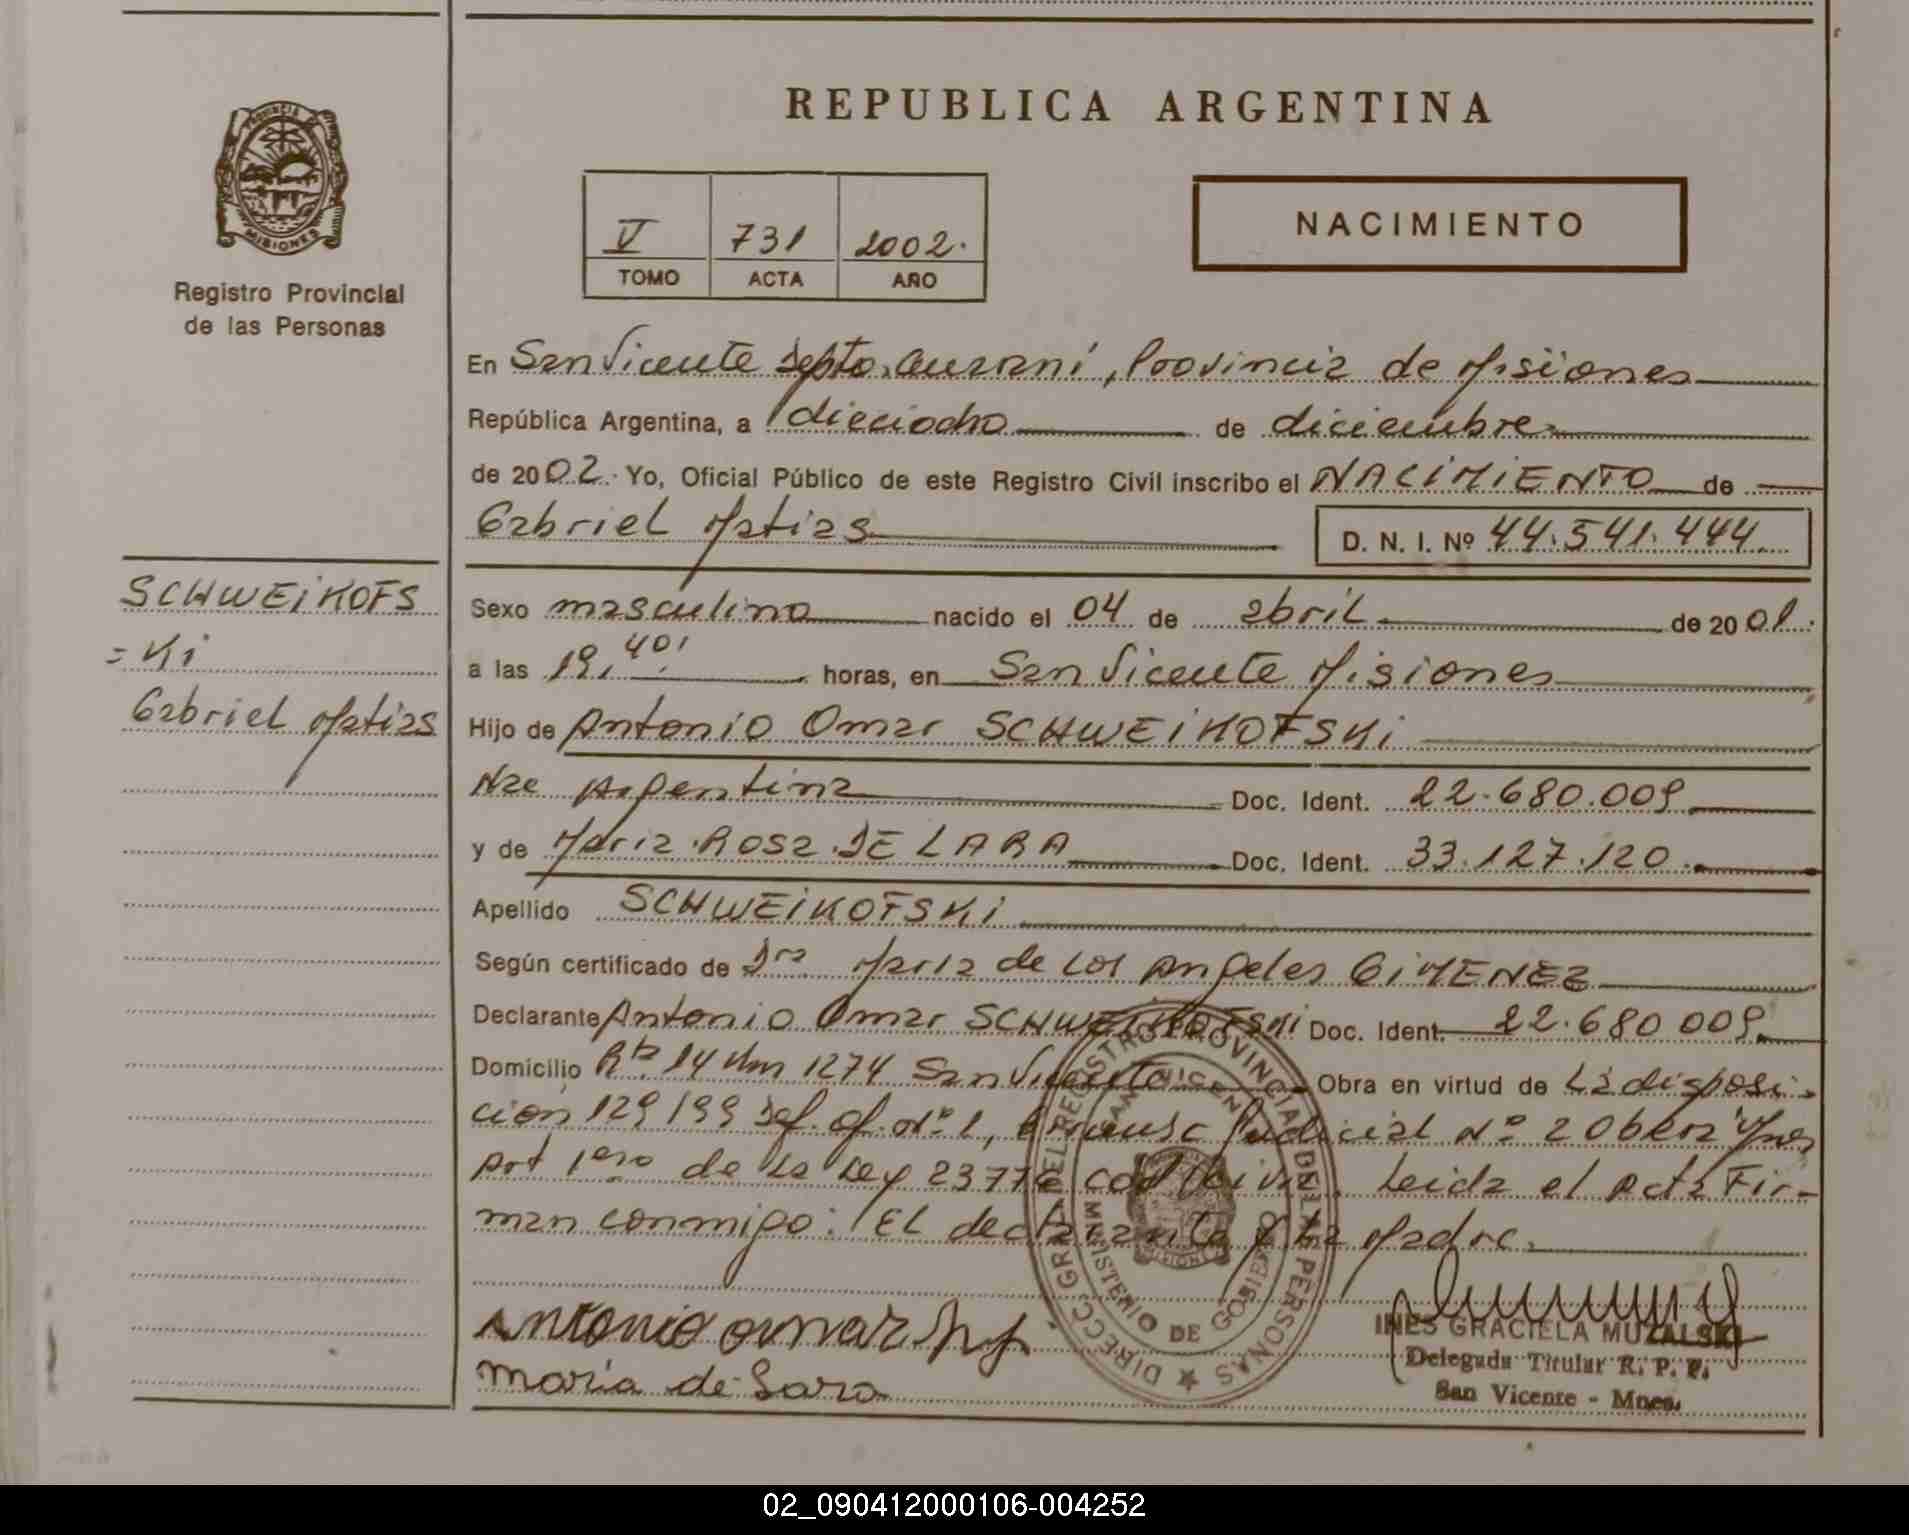 REPUBLICA ARGENTINA
PROVINCIA
MISIONES
Registro Provincial
de las Personas
V 731 2002.
TOMO ACTA AÑO
NACIMIENTO
En San Vicente Depto. Guaraní, Provincia de Misiones
República Argentina, a dieciocho de diciembre
de 2002. Yo, Oficial Público de este Registro Civil inscribo el NACIMIENTO de
Gabriel Matias
D. N. I. Nº 44.541.444
SCHWEIKOFS
=Ki
Gabriel Matias
Sexo masculino nacido el 04 de abril de 2001.
a las 19,40' horas, en San Vicente Misiones
Hijo de Antonio Omar SCHWEIKOFSKi
Nac Argentina Doc. Ident. 22.680.009
y de Maria Rosa DE LARA Doc. Ident. 33.127.120
Apellido SCHWEIKOFSKi
Según certificado de Dra Maria de Los Angeles GiMENEZ
Declarante Antonio Omar SCHWEIKOFSKi Doc. Ident. 22.680 009
Domicilio Rta 14 Km 1274 San Vicente Obra en virtud de La disposi-
ción 129/99 Def. of. Nº 1, Judicial Nº
Art 1ero de La Ley 23776 Cod Civil. Leida el Acta Fir-
man conmigo: El declarante y La Madre.
DIRECC. GRAL. DEL REGISTRO PROVINCIAL DE LAS PERSONAS
MINISTERIO DE GOBIERNO
SAN VICENTE
Antonio omar
Maria de Lara
INES GRACIELA MUZALSKI
Delegada Titular R. P. P.
San Vicente - Mnes.
02_090412000106-004252